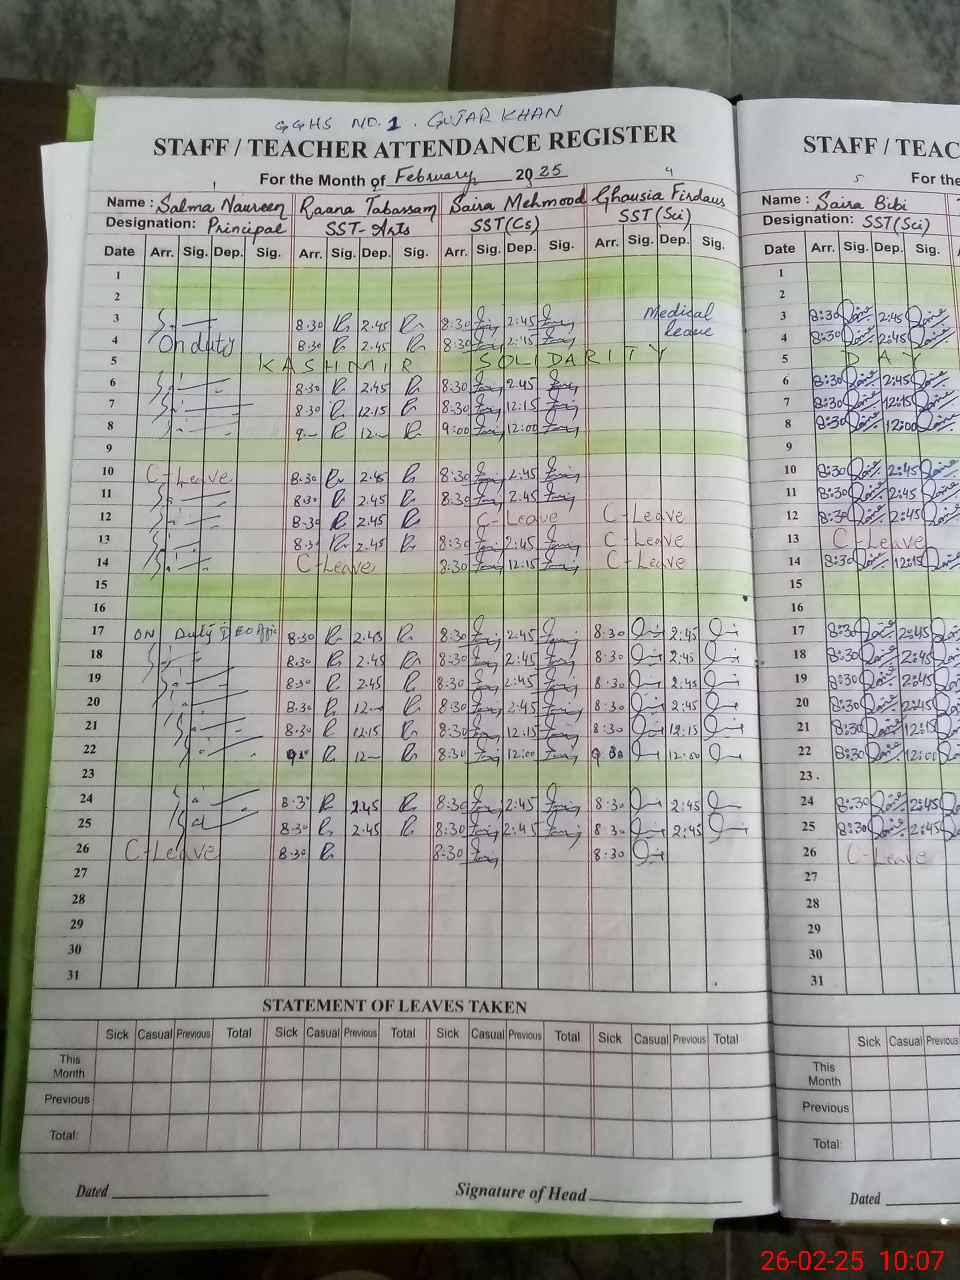 GGHS NO.1. GUJAR KHAN
STAFF / TEACHER ATTENDANCE REGISTER
For the Month of February 2025
1 4
Name : Salma Naureen Raana Tabassam Saira Mehmood Ghausia Firdaus
Designation: Principal SST-Arts SST(Cs) SST(Sci)
Date Arr. Sig. Dep. Sig. Arr. Sig. Dep. Sig. Arr. Sig. Dep. Sig. Arr. Sig. Dep. Sig.
1
2
3 8:30 2:45 8:30 2:45 Medical
4 On duty 8:30 2:45 8:30 2:45 leave
5 KASHMIR SOLIDARITY
6 8:30 2:45 8:30 2:45
7 8:30 12:15 8:30 12:15
8 9 12 9:00 12:00
9
10 C-Leave 8:30 2:45 8:30 2:45
11 8:30 2:45 8:30 2:45
12 8:30 2:45 C-Leave C-Leave
13 8:30 2:45 8:30 2:45 C-Leave
14 C-Leave 8:30 12:15 C-Leave
15
16
17 ON Duty 8:30 2:45 8:30 2:45 8:30 2:45
18 8:30 2:45 8:30 2:45 8:30 2:45
19 8:30 2:45 8:30 2:45 8:30 2:45
20 8:30 12 8:30 2:45 8:30 2:45
21 8:30 12:15 8:30 12:15 8:30 12:15
22 12 8:30 12:00 12:00
23
24 8:30 2:45 8:30 2:45 8:30 2:45
25 8:30 2:45 8:30 2:45 8:30 2:45
26 C-Leave 8:30 8:30 8:30
27
28
29
30
31
STATEMENT OF LEAVES TAKEN
Sick Casual Previous Total Sick Casual Previous Total Sick Casual Previous Total Sick Casual Previous Total
This
Month
Previous
Total:
Dated Signature of Head
STAFF / TEAC
5 For the
Name : Saira Bibi
Designation: SST(Sci)
Date Arr. Sig. Dep. Sig.
1
2
3 8:30 2:45
4 8:30 2:45
5 DAY
6 8:30 2:45
7 8:30 12:15
8 8:30 12:00
9
10 8:30 2:45
11 8:30 2:45
12 8:30 2:45
13 C-Leave
14 8:30 12:15
15
16
17 8:30 2:45
18 8:30 2:45
19 8:30 2:45
20 8:30 2:45
21 8:30 12:15
22 8:30 12:00
23
24 8:30 2:45
25 8:30 2:45
26 C-Leave
27
28
29
30
31
Sick Casual Previous
This
Month
Previous
Total:
Dated
26-02-25 10:07